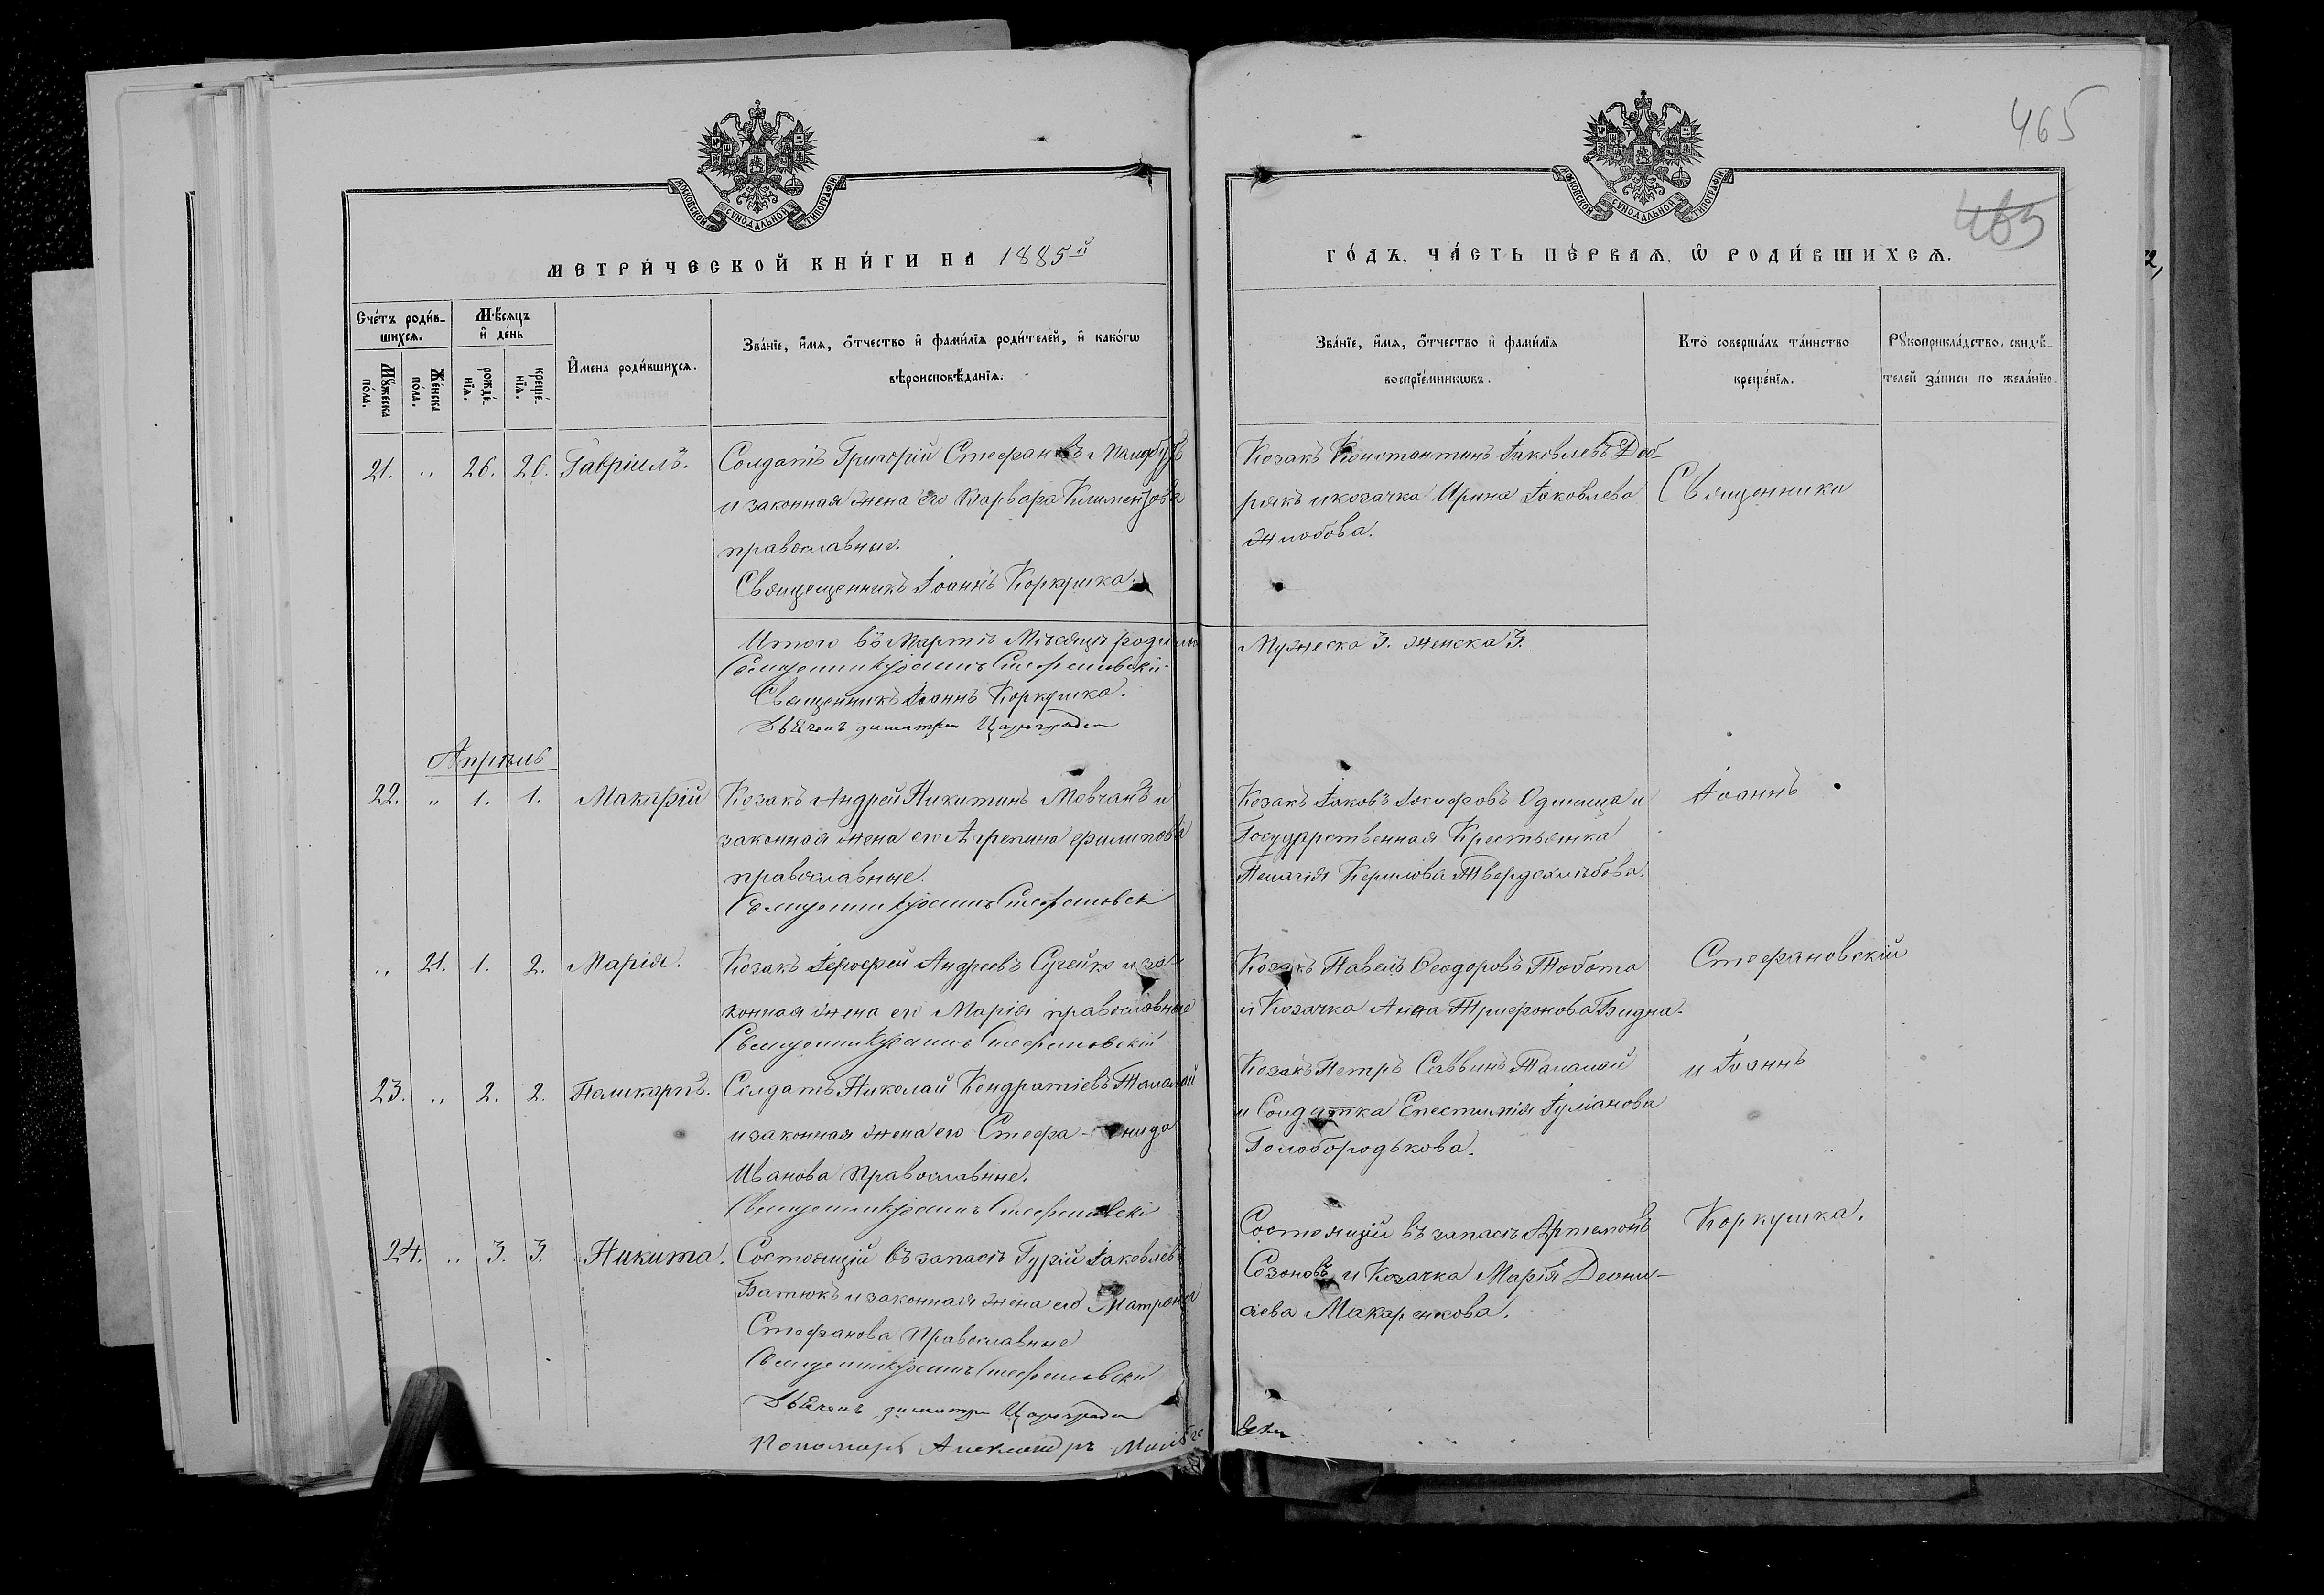 465
465
МОСКОВСКОЙ СѴНОДАЛЬНОЙ ТИПОГРАФІИ
МЕТРИ́ЧЕСКОЙ КНИ́ГИ НА 1885й
Сче́тъ роди́в-
шихсѧ.
Мꙋ́жеска по́ла.
Же́нска по́ла.
Мѣ́сяцъ
и҆ де́нь
рожде́-
нїѧ.
креще́-
нїѧ.
И҆мена роди́вшихсѧ.
Зва́нїе, и҆́мѧ, ѻ҆́тчество и҆ фами́лїѧ роди́телей, и҆ како́гѡ
вѣроисповѣ́данїѧ.
21. " 26. 26. Гавріилъ.
Солдатъ Григорій Стефановъ
и законная жена его Варвара Климентова
православные.
Священникъ Іоаннъ Коркушка.
Итого въ Мартѣ Мѣсяцѣ родилось
Священникъ Іоаннъ Стефановскій
Священникъ Іоаннъ Коркушка.
Дьячокъ Димитрій
Апрѣль
22. " 1. 1. Макарій
Козакъ Андрей Никитинъ Мовчанъ и
законная жена его Агрепина Филипова
православные.
Священникъ Іоаннъ Стефановскі
" 21. 1. 2. Марія.
Козакъ Іерофей Андреевъ и за-
конная жена его Марія православные
Священникъ Іоаннъ Стефановскій
23. " 2. 2. Поликарпъ.
Солдатъ Николай Кондратіевъ Таламай
и законная жена его Стефа-нида
Иванова Православные.
Священникъ Іоаннъ Стефановскі
24. " 3. 3. Никита.
Состоящій въ запасѣ Гурій Іаковлевъ
Батюкъ и законная жена его Матрона
Стефанова Православные
Священникъ Іоаннъ Стефановскій
Дьячокъ Димитрій
Пономарь Александръ
МОСКОВСКОЙ СѴНОДАЛЬНОЙ ТИПОГРАФІИ
ГО́ДЪ, ЧА́СТЬ ПЕ́РВАѦ, Ѽ РОДИ́ВШИХСѦ.
Зва́нїе, и҆́мѧ, ѻ҆́тчество и҆ фами́лїѧ
воспрїе́мникѡвъ.
Кто̀ соверша́лъ та́инство
креще́нїѧ.
Рꙋкоприкла́дство, свидѣ́-
телей за́писи по жела́нїю.
Козакъ Константинъ Іаковлевъ Доб-
рякъ и козачка Ирина Іаковлева
Жлобова.
Священники
Мужеска 3. Женска 3.
Козакъ Іаковъ Іосифовъ Одиница и
Государственная Крестьянка
Пелагія Кирилова Твердохлѣбова.
Іоаннъ
Козакъ Павелъ Ѳеодоровъ Тобота
и Козачка Анна Трифонова Бидна.
Стефановскій
Козакъ Петръ Саввинъ Таламай
и Солдатка Епестимія Іуліанова
Голобородькова.
и Іоаннъ
Состоящій въ запасѣ Артемонъ
Созоновъ и Козачка Марія Деони-
сіева Макаренкова.
Коркушка.